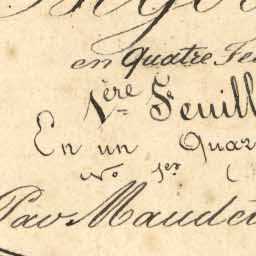 en Quatre Fe
1ère Feuill
En un Quar
No 1er (
Par Maude